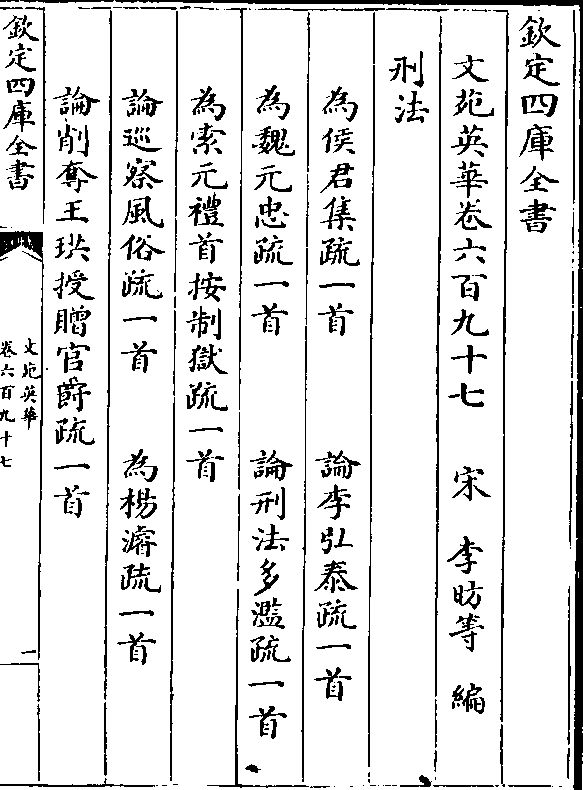 欽定四庫全書
文苑英華卷六百九十七 宋 李昉等 編
刑法
為侯君集疏一首 論李弘泰疏一首
為魏元忠疏一首 論刑法多濫疏一首
為索元禮首按制獄疏一首
論巡察風俗疏一首 為楊濬疏一首
論削奪王珙授贈官爵疏一首
欽定四庫全書
文苑英華
卷六百九十七
一